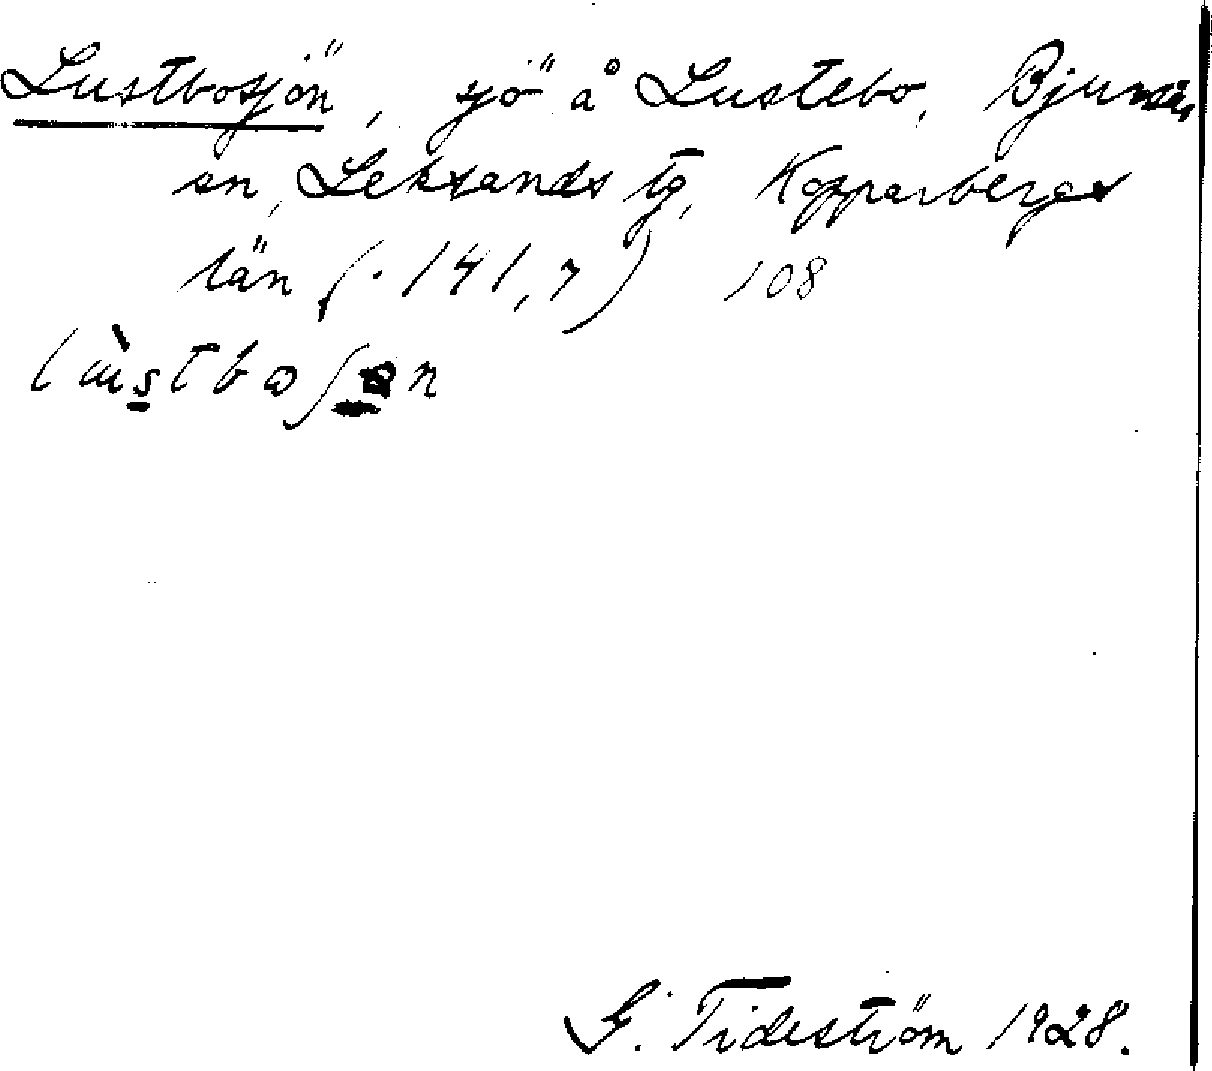 Lustbosjön, sjö å Lustebo, Bjursås
sn, Leksands tg, Kopparbergs
län (. 141,7) 108
G. Tideström 1928.